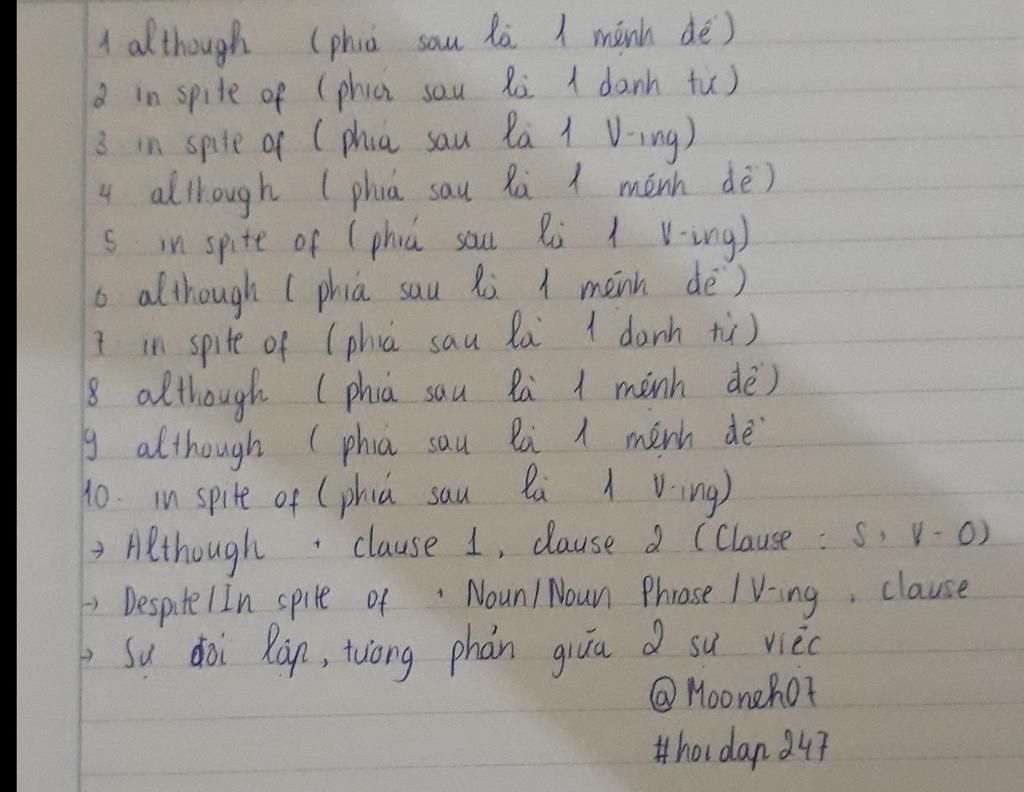 1 although (phiá sau là 1 mệnh đề)
2 in spite of (phiá sau là 1 danh từ)
3 in spite of (phiá sau là 1 V-ing)
4 although (phiá sau là 1 mệnh đề)
5 in spite of (phiá sau là 1 V-ing)
6 although (phiá sau là 1 mệnh đề)
7 in spite of (phiá sau là 1 danh từ)
8 although (phiá sau là 1 mệnh đề)
9 although (phiá sau là 1 mệnh đề
10. in spite of (phiá sau là 1 V-ing)
→ Although + clause 1, clause 2 (Clause: S + V + O)
→ Despite/In spite of + Noun/Noun Phrase/V-ing, clause
→ Sự đối lập, tương phản giữa 2 sự việc
@Mooneh07
#hoidap247